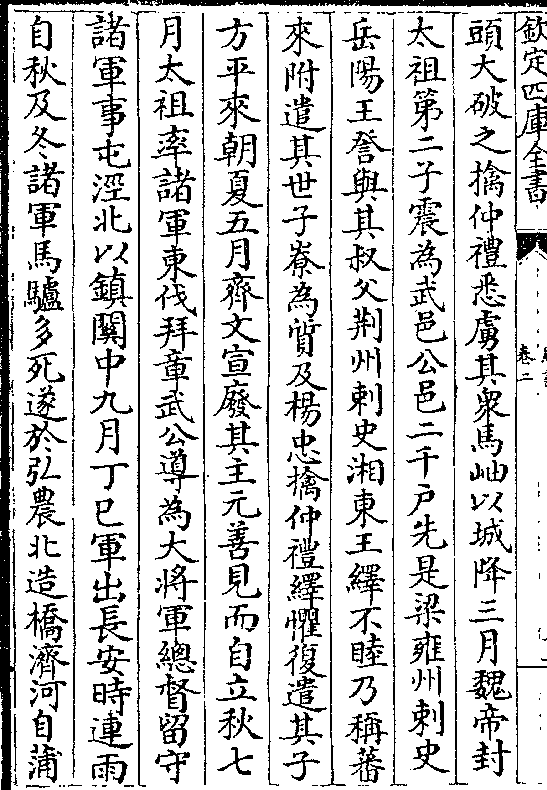 欽定四庫全書
卷二
頭大破之擒仲禮悉虜其衆馬岫以城降三月魏帝封
太祖第二子震為武邑公邑二千户先是梁雍州刺史
岳陽王詧與其叔父荆州刺史湘東王繹不睦乃稱蕃
來附遣其世子嶚為質及楊忠擒仲禮繹懼復遣其子
方平來朝夏五月齊文宣廢其主元善見而自立秋七
月太祖率諸軍東伐拜章武公導為大將軍總督留守
諸軍事屯涇北以鎮關中九月丁巳軍出長安時連雨
自秋及冬諸軍馬驢多死遂於弘農北造橋濟河自蒲